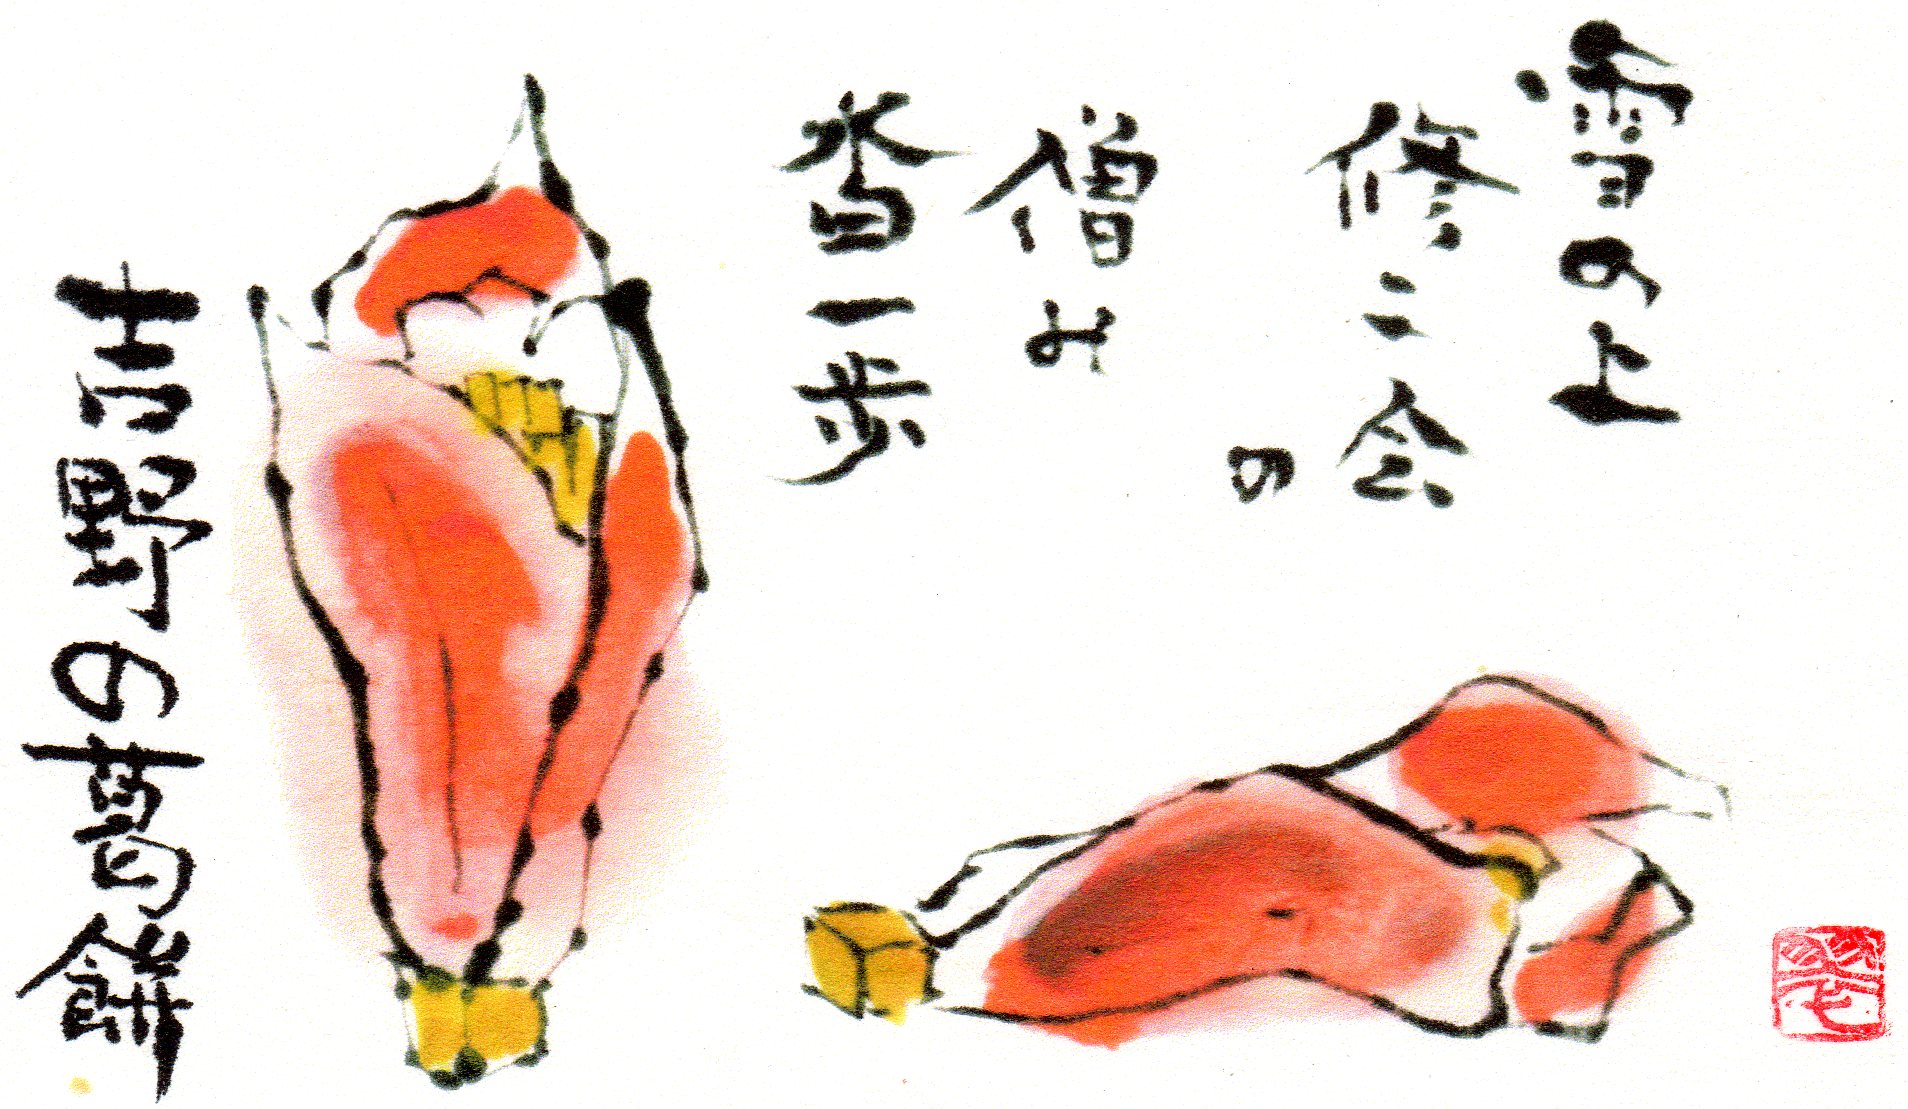 雪の上
修二会
の
僧み
沓一歩
吉野の葛餅